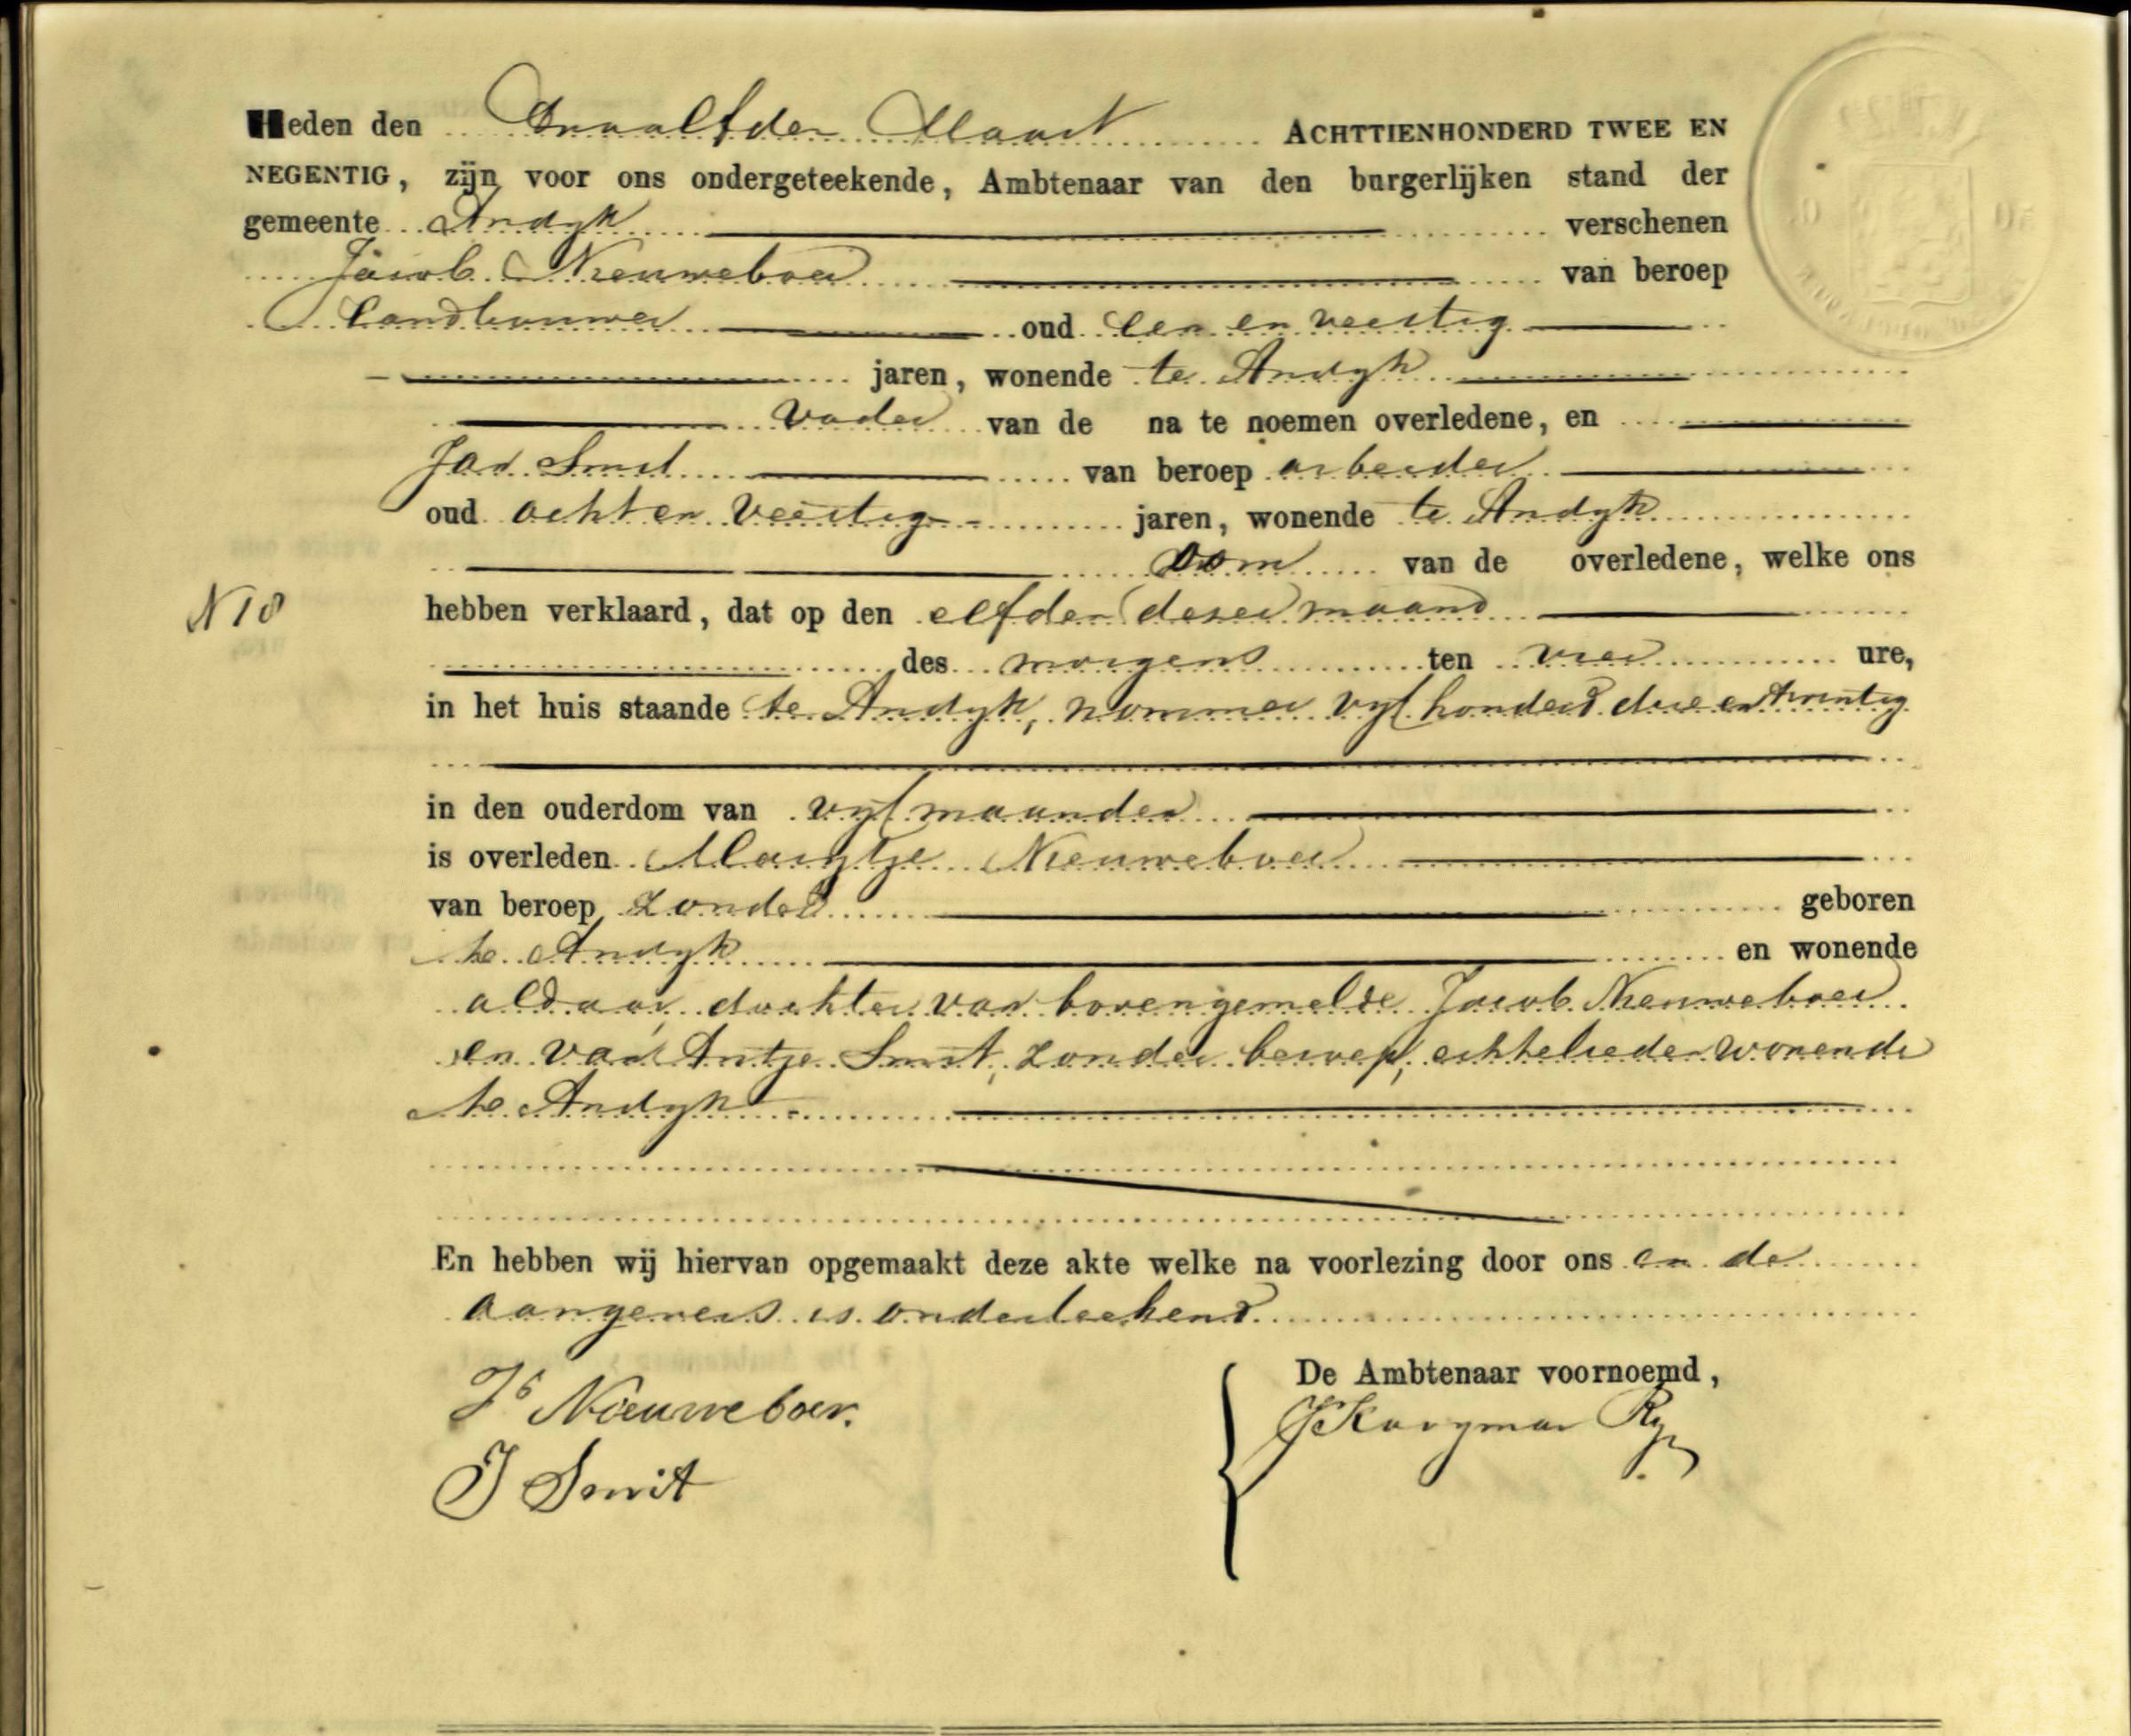 Heden den Twaalfden Maart ACHTTIENHONDERD TWEE EN
NEGENTIG, zijn voor ons ondergeteekende, Ambtenaar van den burgerlijken stand der
gemeente Andyk verschenen
Jacob Nieuweboer van beroep
Landbouwer oud een en veertig
jaren, wonende te Andyk
vader van de na te noemen overledene, en
Jan Smit van beroep arbeider
oud acht en veertig jaren, wonende te Andyk
oom van de overledene, welke ons
N 18
hebben verklaard, dat op den elfden dezer maand
des morgens ten vier ure,
in het huis staande te Andyk, nommer vyf honderd drie en twintig
in den ouderdom van vyf maanden
is overleden Maartje Nieuweboer
van beroep zonder geboren
te Andyk en wonende
aldaar, dochter van bovengemelde Jacob Nieuweboer
en van Antje Smit, zonder beroep, echtelieden wonende
te Andyk
En hebben wij hiervan opgemaakt deze akte welke na voorlezing door ons en de
aangevers is onderteekend.
De Ambtenaar voornoemd,
Jb Nieuweboer.
J Smit
Kooyman Rz